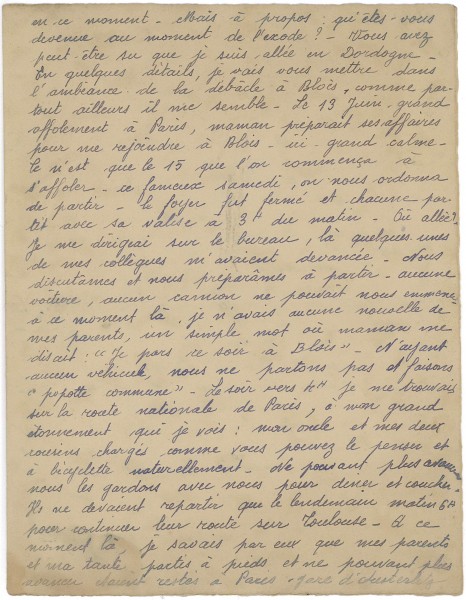 en ce moment - Mais à propos : qu'êtes-vous
devenue au moment de l'exode ? - Vous avez
peut-être su que je suis allée en Dordogne -
En quelques détails, je vais vous mettre dans
l'ambiance de la débâcle à Blois, comme par-
tout ailleurs il me semble - Le 13 Juin, grand
affolement à Paris, maman préparait ses affaires
pour me rejoindre à Blois - ici grand calme -
Ce n'est que le 15 que l'on commença à
s'affoler - ce fameux samedi, on nous ordonna
de partir - le foyer fut fermé et chacune par-
tit avec sa valise à 3H du matin - Où aller ?
Je me dirigeai sur le bureau, là quelques-unes
de mes collègues m'avaient devancée - Nous
discutâmes et nous préparâmes à partir - aucune
voiture, aucun camion ne pouvait nous emmener
à ce moment là, je n'avais aucune nouvelle de
mes parents, un simple mot où maman me
disait : "Je pars ce soir à Blois" - N'ayant
aucun véhicule, nous ne partons pas et faisons
"popotte commune" - Le soir vers je me trouvais
sur la route nationale de Paris, à mon grand
étonnement, qui je vois : mon oncle et mes deux
cousins chargés comme vous pouvez le penser et
à bicyclette naturellement - Ne pouvant plus avancer
nous les gardons avec nous pour diner et coucher
Ils ne devaient repartir que le lendemain matin 6H
pour continuer leur route sur Toulouse - A ce
moment là je savais par eux que mes parents
et ma tante partis à pieds et ne pouvant plus
avancer étaient restés à Paris - gare d'Austerlitz